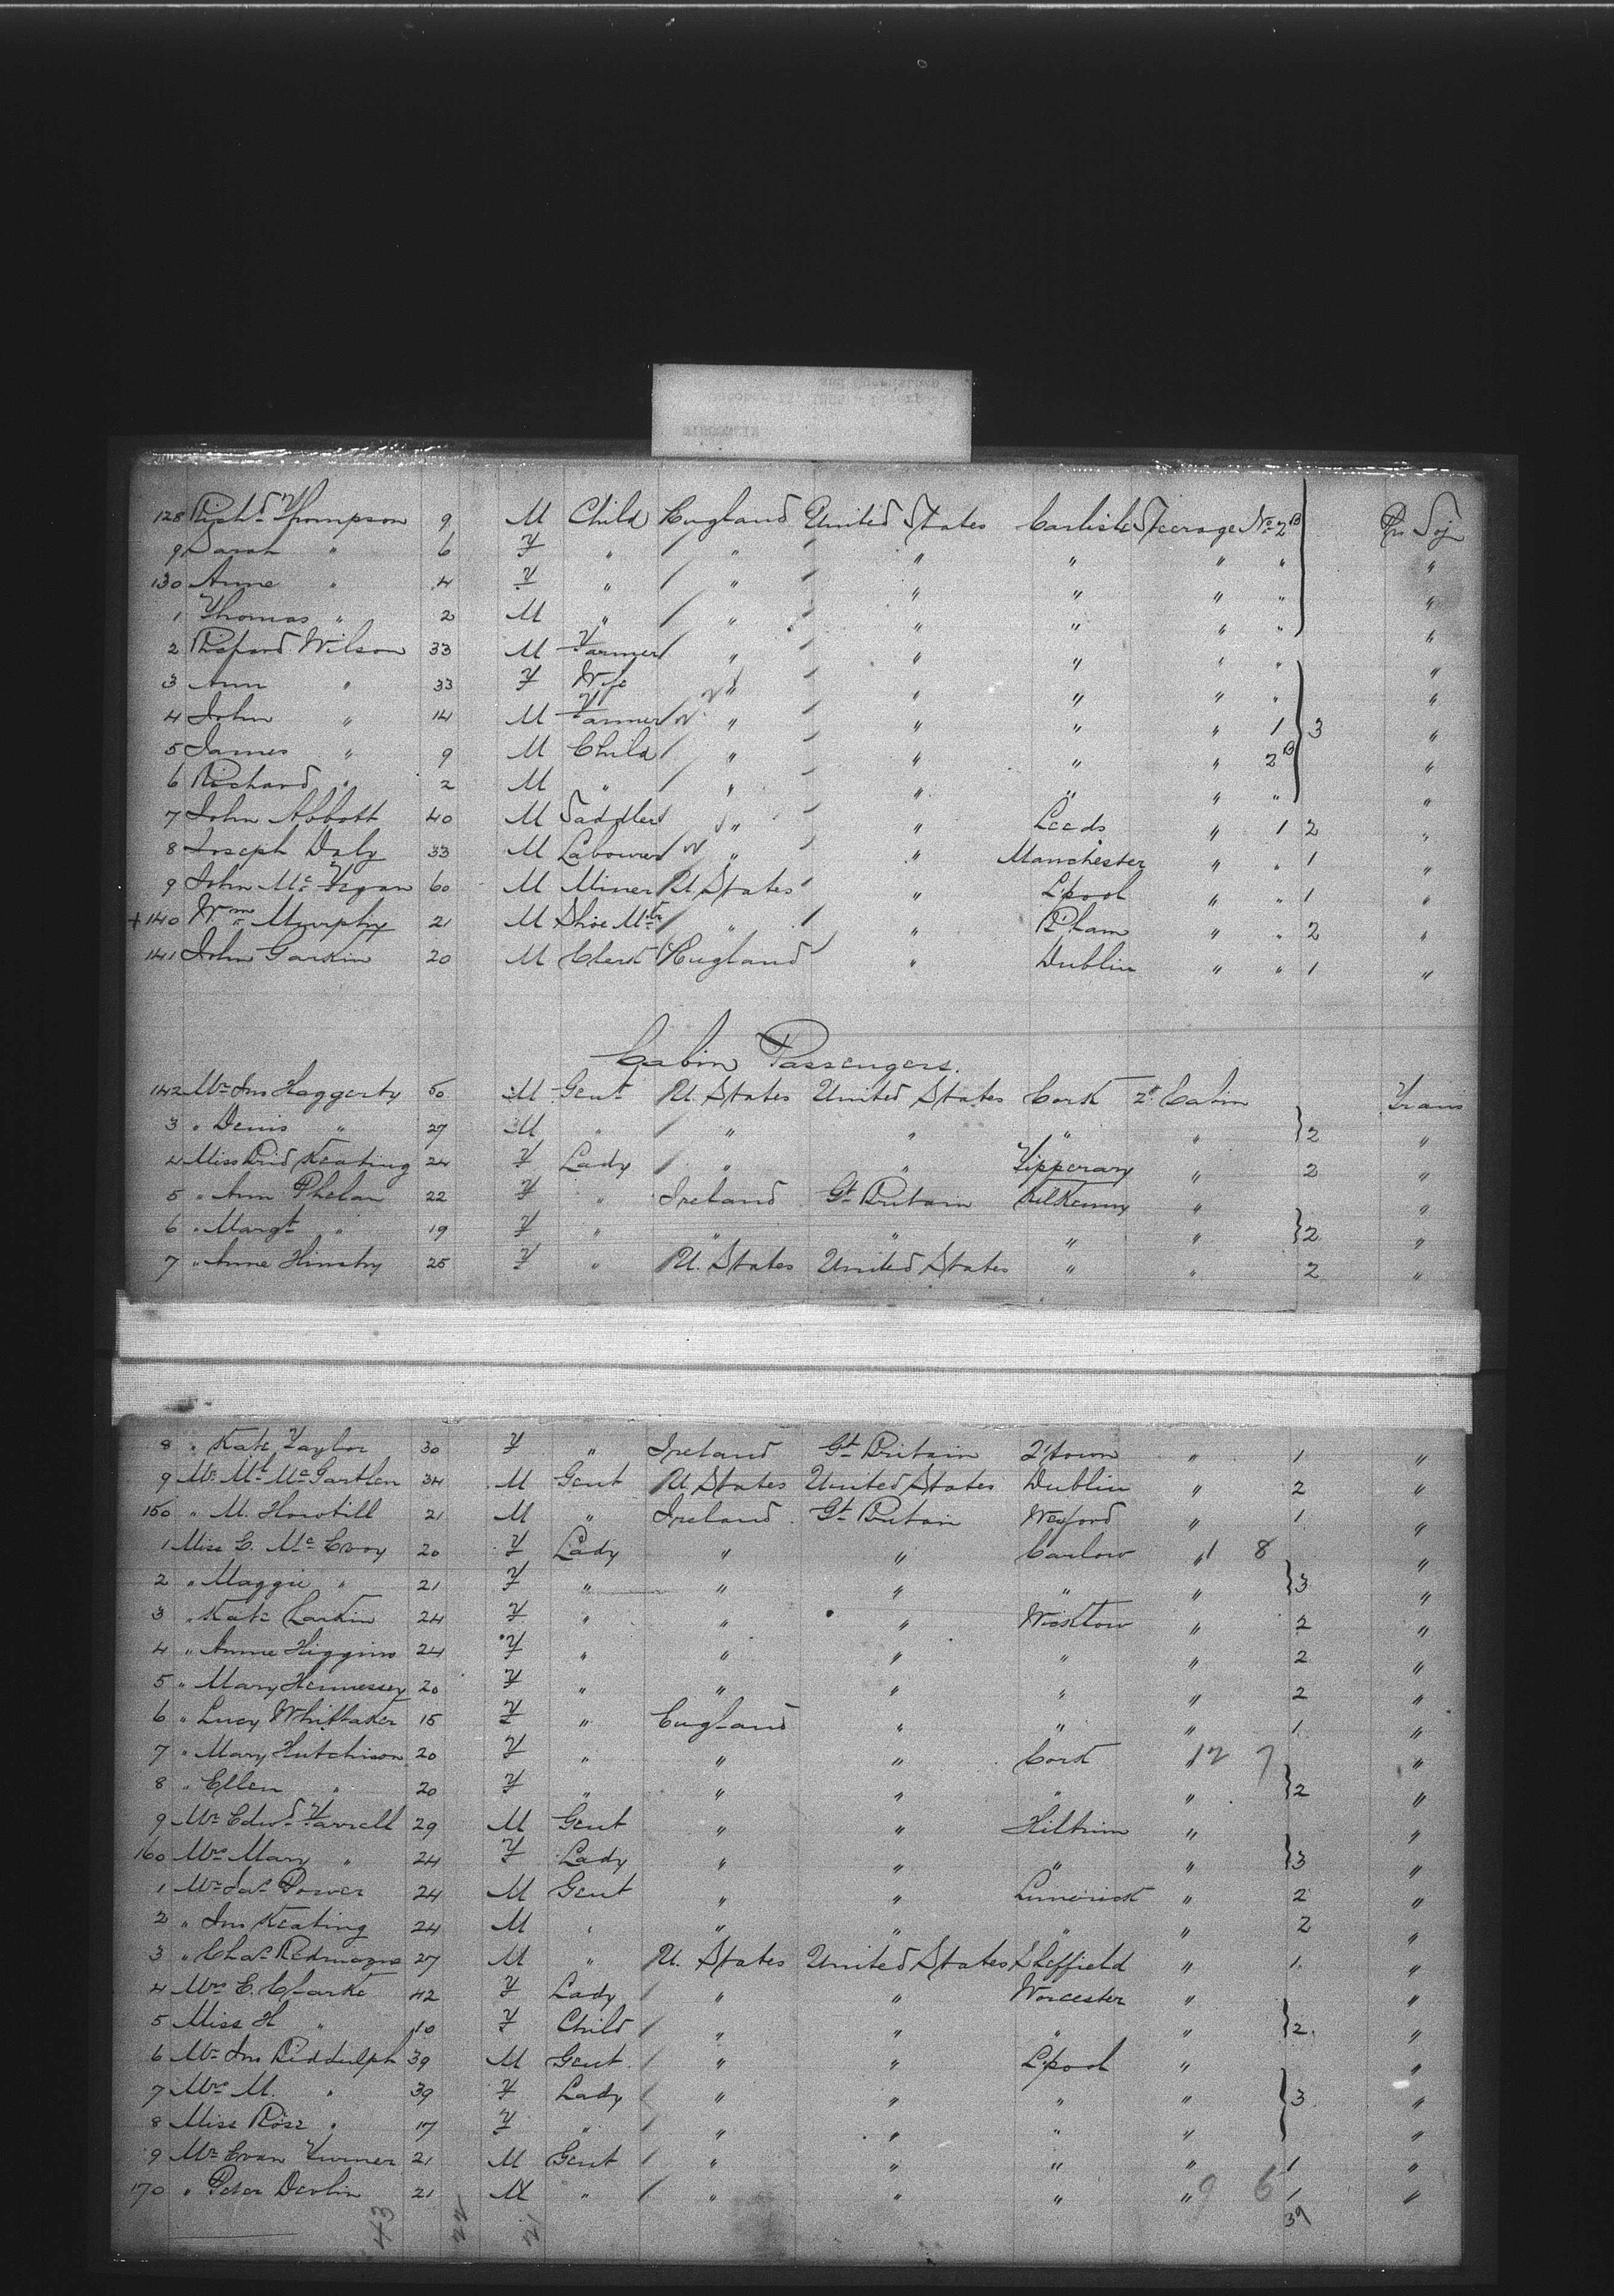 128 Richd Thompson 9 M Child England United States Carlisle Steerage No 2B Pr Soj
9 Sarah " 6 F " " " " " " "
130 Anne " 4 F " " " " " " "
1 Thomas " 2 M " " " " " " "
2 Wilson 33 M Farmer " " " " " "
3 Ann " 33 F Wife " " " " " "
4 John " 14 M Farmer " " " " 1 3 "
5 James " 9 M Child " " " " 2B "
6 Richard " 2 M " " " " " " "
7 John Abbott 40 M Saddler " " Leeds " 1 2 "
8 Joseph Daly 33 M Labourer " " Manchester " " 1 "
9 John Mc 60 M Miner U States " L'pool " " 1 "
+ 140 Wm Murphy 21 M Shoe Mkr " " B'ham " " 2 "
141 John Garkin 20 M Clerk England " Dublin " " 1 "
Cabin Passengers.
142 Mr Jno Haggerty 50 M Gent U. States United States Cork 2d Cabin Trans
3 " Denis " 27 M " " " " " 2 "
4 Miss Brid Keating 24 F Lady " " Tipperary " 2 "
5 " Ann Phelan 22 F " Ireland Gt Britain Kilkenny " "
6 " Margt " 19 F " " " " " 2 "
7 " Anne 25 F " U. States United States " " 2 "
8 " Kate Taylor 30 F " Ireland Gt Britain Q'town " 1 "
9 Mr Ml McPartlen 34 M Gent U. States United States Dublin " 2 "
150 " M. 21 M " Ireland Gt Britain Wexford " 1 "
1 Miss C. McEvoy 20 F Lady " " Carlow " 1 8 "
2 " Maggie " 21 F " " " " " 3 "
3 " Kate Larkin 24 F " " " Wicklow " 2 "
4 " Annie Higgins 24 F " " " " " 2 "
5 " Mary Hennessey 20 F " " " " " 2 "
6 " Lucy Whittaker 15 F " England " " " 1 "
7 " Mary Hutchison 20 F " " " Cork " 12 7 "
8 " Ellen " 20 F " " " " " 2 "
9 Mr Edwd Farrell 29 M Gent " " " "
160 Mrs Mary " 24 F Lady " " " " 3 "
1 Mr Jas Power 24 M Gent " " Limerick " 2 "
2 " Jno Keating 24 M " " " " " 2 "
3 " Chas 27 M " U. States United States Sheffield " 1 "
4 Mrs E. Clarke 42 F Lady " " Worcester " "
5 Miss H " 10 F Child " " " " 2 "
6 Mr Jno Biddulph 39 M Gent " " L'pool " "
7 Mrs M. " 39 F Lady " " " " 3 "
8 Miss Rose " 17 F " " " " " "
9 Mr Evan Turner 21 M Gent " " " " 1 "
170 " Peter Devlin 21 M " " " " " 9 6 1 "
43 22 21 39